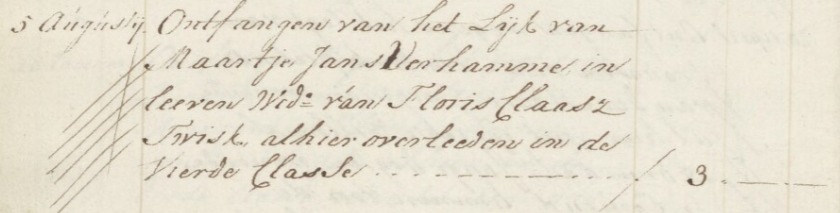 5 Augustij. Ontfangen van het Lijk van
Maartje Jans Verhamme, in
leeven Wed:e van Floris Claasz
Twisk, alhier overleeden in de
Vierde Classe - - - - - - - - - - / 3 . - - -